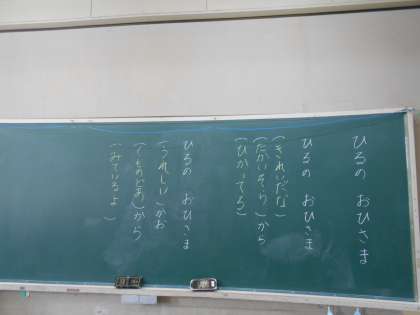 ひるの　おひさま
ひるの　おひさま
(きれいだな)
(たかいそら)から
(ひかってる)
ひるの　おひさま
(うれしい)かお
(　　　)から
(みているよ)